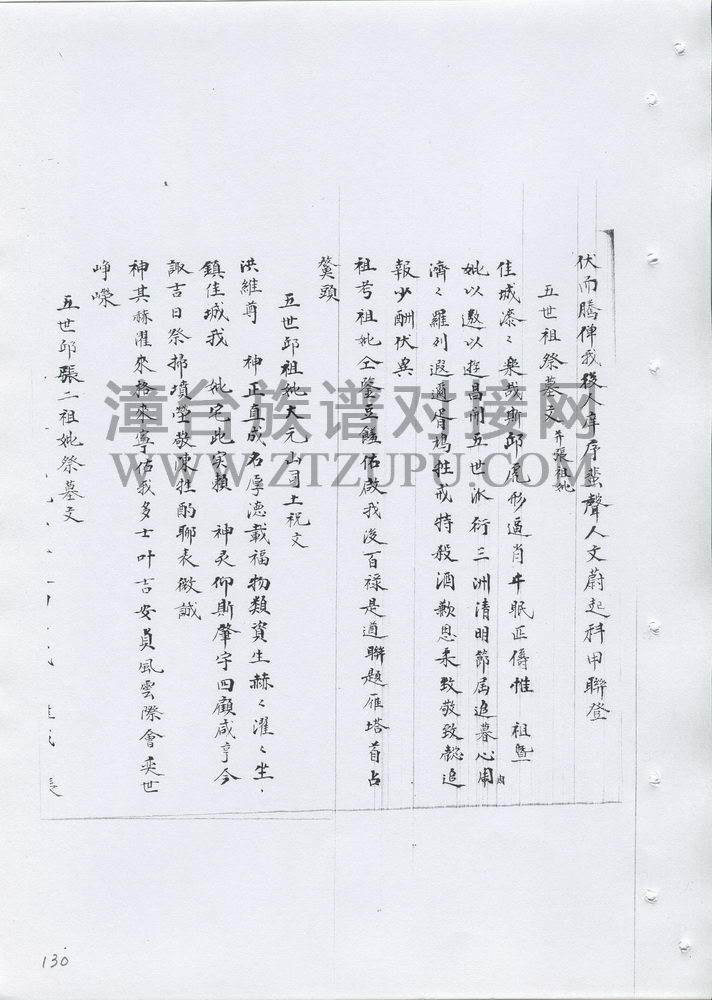 伏而騰俾我後人庠序蜚聲人文蔚起科甲聯登
五世祖祭墓文 并張祖妣
佳城漆〻樂哉斯邱虎形逼肖牛眠正儔惟 祖暨
妣以遨以遊昌州五世泒衍三洲清明節屆追慕心周
濟〻羅列遐邇胥鳩牲戒特殺酒歉思柔致敬致慤追
報少酬伏冀
祖考祖妣仝鑒豆饈佑啟我後百禄是遒聯題雁塔首占
鰲頭
五世邱祖妣大元山司土祝文
洪維尊 神正直成名厚德載福物類資生赫〻濯〻坐
鎮佳城我 妣宅此实賴 神灵仰斯肇宇四顧咸亨今
諏吉日祭掃墳塋敬陳牲酌聊表微誠
神其赫濯來格來寧佑我多士叶吉安貞風雲際會奕世
崢嶸
五世邱張二祖妣祭墓文
漳台族谱对接网
WWW.ZTZUPU.COM
130